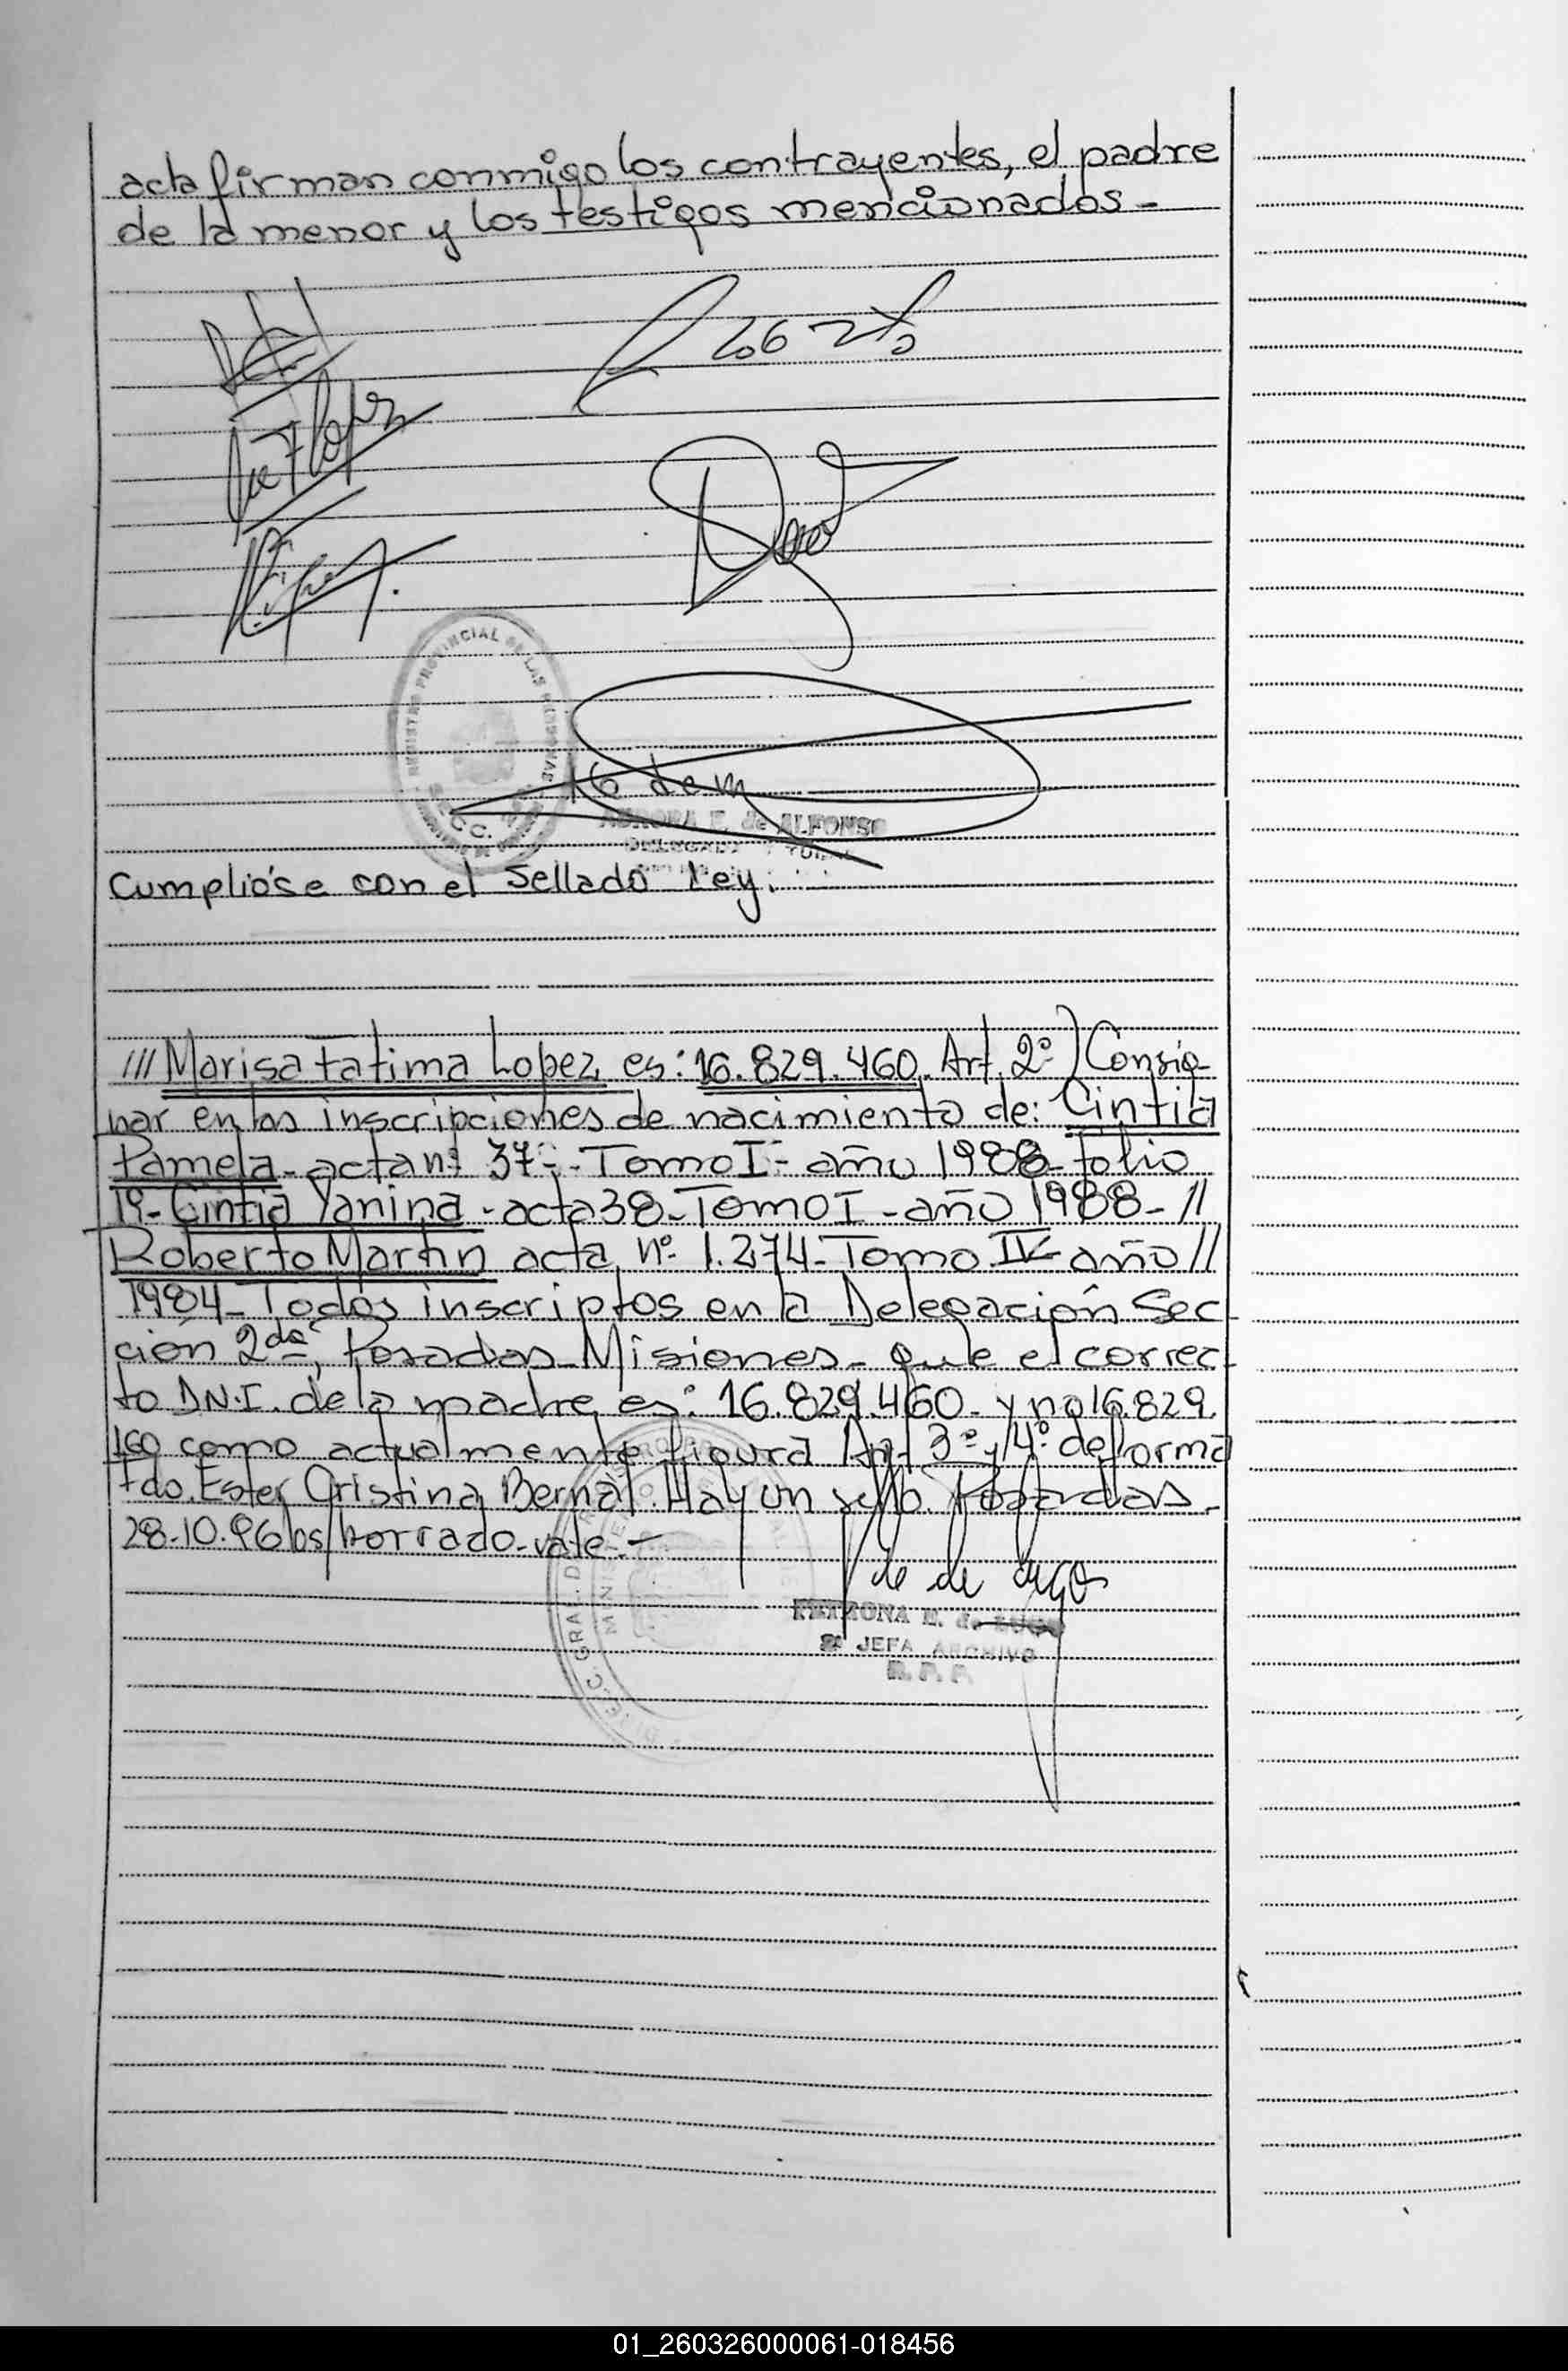 acta firman conmigo los contrayentes, el padre
de la menor y los testigos mencionados -
REGISTRO PROVINCIAL DE LAS PERSONAS
SECC.
AURORA E. de ALFONSO
Cumplióse con el Sellado Ley.
/// Marisa Fatima Lopez, es: 16.829.460. Art. 2º) Consig-
nar en las inscripciones de nacimiento de: Cintia
Pamela - acta nº 37 - Tomo I - año 1988 - folio
19 - Cintia Yanina - acta 38 - Tomo I - año 1988 - //
Roberto Martin acta nº 1.274 - Tomo IV - año //
1984 - Todos inscriptos en la Delegación Sec
ción 2da, Posadas - Misiones - que el correc-
to D.N.I. de la madre es: 16.829.460 - y no 16.829.
160 como actualmente figura Art 3º y 4º de forma
Fdo. Ester Cristina Bernal. Hay un sello. Posadas -
28.10.96 bs/borrado - vale. -
PETRONA E. de LUGO
JEFA ARCHIVO
R. P. P.
01_260326000061-018456